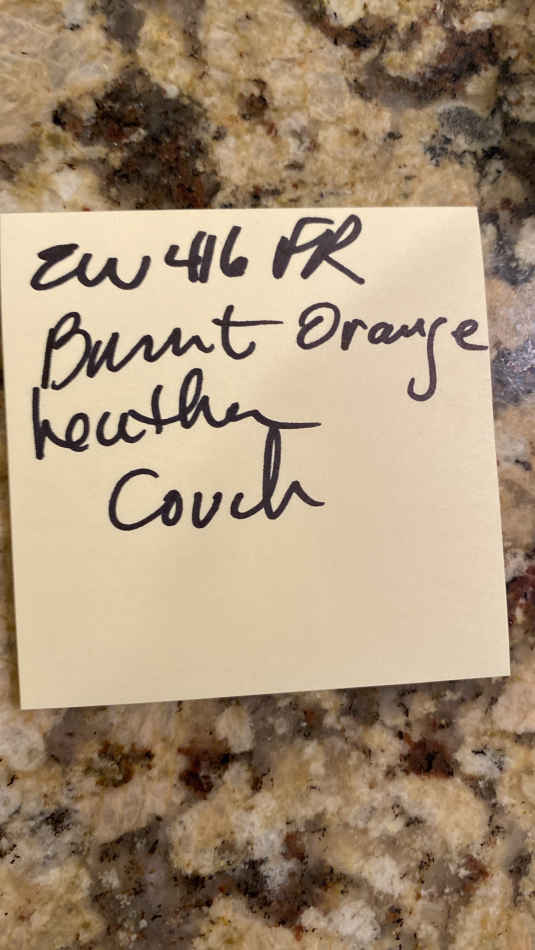 EW 416 FR
Burnt Orange
Leather
Couch